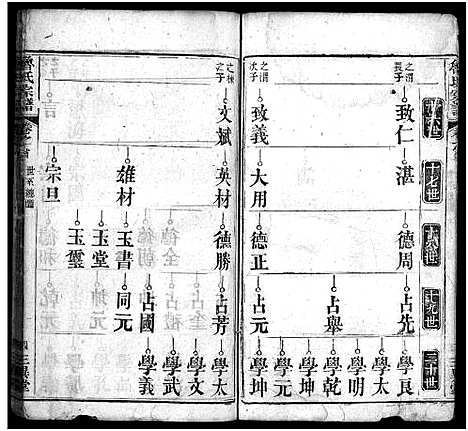 十七世
十八世
十九世
二十世
之渭長子
致仁
湛
德周
占先
占舉
學良
學太
學明
學乾
學坤
學元
學坤
之渭次子
致義
大用
德正
占元
魯氏宗譜
之棟之子
文斌
英材
雄材
宗旦
德勝
玉書
玉堂
玉璽
占芳
同元
占國
學太
學文
學武
學義
四
三異堂